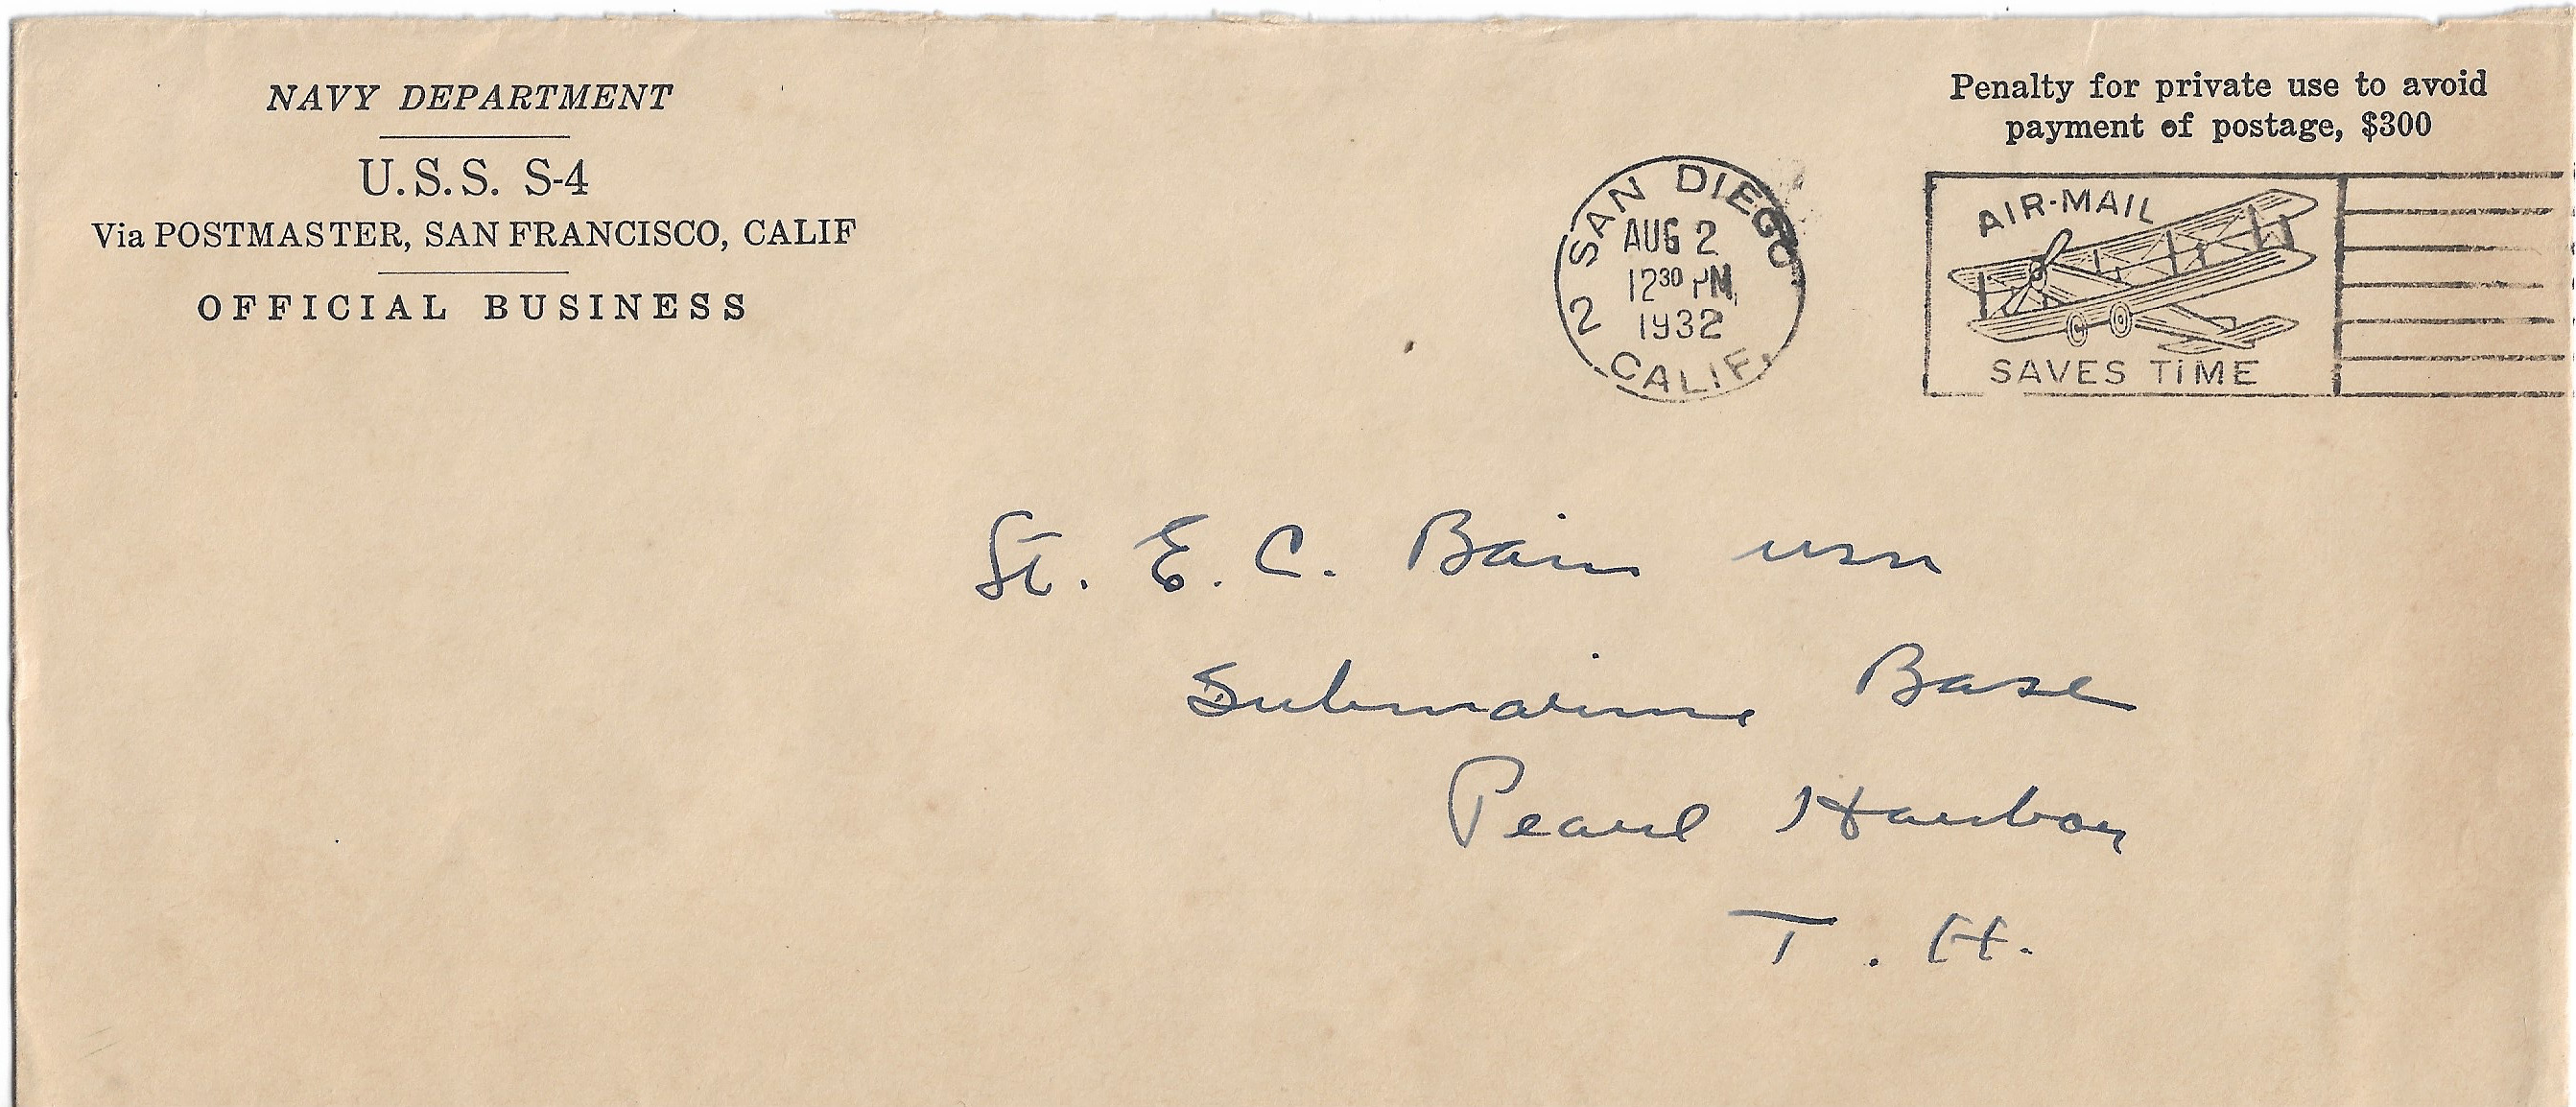 NAVY DEPARTMENT
U.S.S. S-4
Via POSTMASTER, SAN FRANCISCO, CALIF
OFFICIAL BUSINESS
Penalty for private use to avoid
payment of postage, $300
SAN DIEGO
AUG 2
12 30 PM
1932
2
CALIF.
AIR-MAIL
SAVES TIME
Lt. E. C. Bain USN
Submarine Base
Pearl Harbor
T. H.